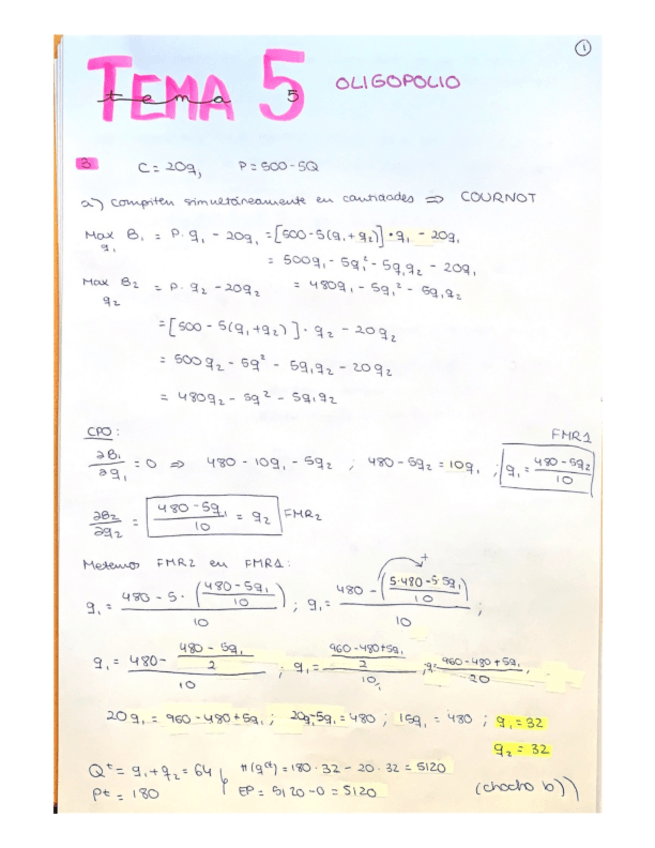 1
TEMA 5
tema 5
OLIGOPOLIO
3 C = 20q₁ P = 500 - 5Q
a) compiten simultáneamente en cantidades ⇒ COURNOT
Max B₁ = P · q₁ - 20q₁ = [500 - 5(q₁ + q₂)] · q₁ - 20q₁
q₁
= 500q₁ - 5q₁² - 5q₁q₂ - 20q₁
Max B₂ = P · q₂ - 20q₂ = 480q₁ - 5q₁² - 5q₁q₂
q₂
= [500 - 5(q₁ + q₂)] · q₂ - 20q₂
= 500q₂ - 5q² - 5q₁q₂ - 20q₂
= 480q₂ - 5q² - 5q₁q₂
CPO: FMR1
∂B₁/∂q₁ = 0 ⇒ 480 - 10q₁ - 5q₂ ; 480 - 5q₂ = 10q₁ ; q₁ = (480 - 5q₂)/10
∂B₂/∂q₂ = (480 - 5q₁)/10 = q₂ FMR₂
Metemos FMR2 en FMR1:
q₁ = (480 - 5 · ((480 - 5q₁)/10))/10 ; q₁ = (480 - ((5·480 - 5·5q₁)/10))/10 ; +
q₁ = (480 - (480 - 5q₁)/2)/10 ; q₁ = ((960 - 480 + 5q₁)/2)/10 ; q = (960 - 480 + 5q₁)/20 ;
20q₁ = 960 - 480 + 5q₁ ; 20q₁ - 5q₁ = 480 ; 15q₁ = 480 ; q₁ = 32
q₂ = 32
Qᵗ = q₁ + q₂ = 64 π(q) = 180 · 32 - 20 · 32 = 5120
Pᵗ = 180 EP = 5120 - 0 = 5120 (chocho b))